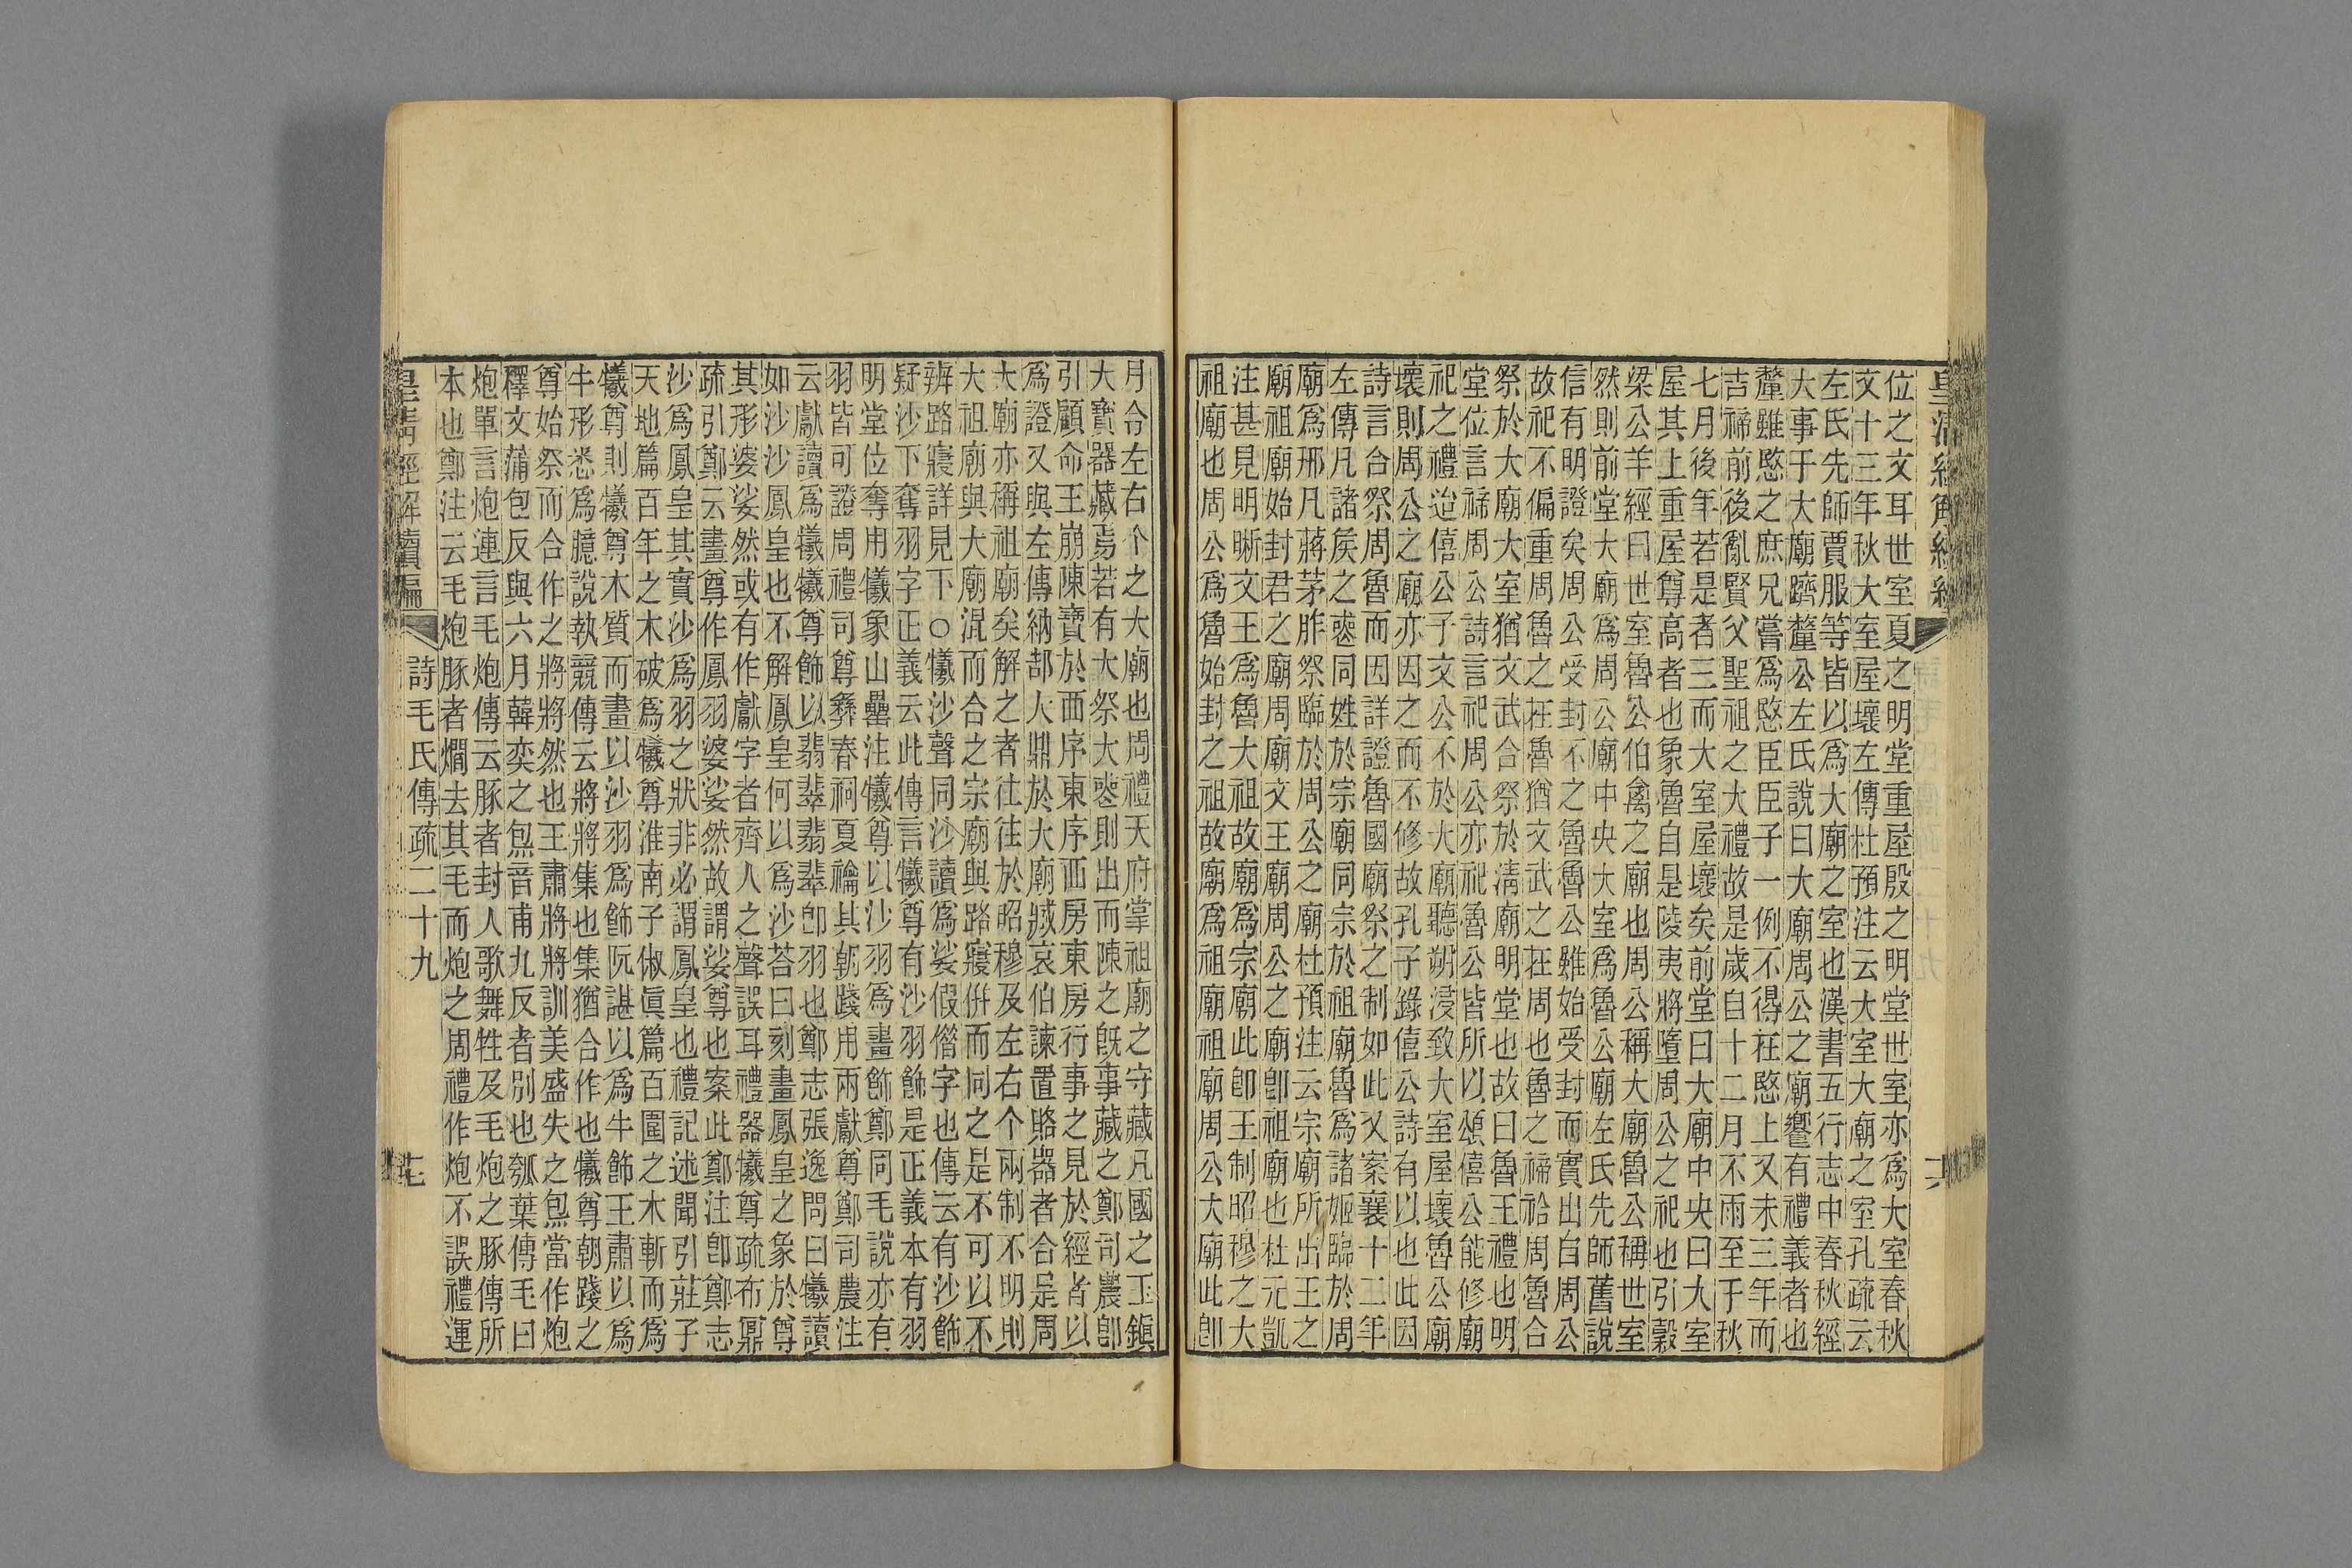 位之文耳世室夏之明堂重屋殷之明堂世室亦爲大室春秋
文十三年秋大室屋壞左傳杜預注云大室大廟之室孔疏云
左氏先師賈服等皆以爲大廟之室也漢書五行志中春秋經
大事于大廟躋釐公左氏說曰大廟周公之廟饗有禮義者也
釐雖愍之庶兄嘗爲愍臣臣子一例不得在愍上又未三年而
吉禘前後亂賢父聖祖之大禮故是歲自十二月不雨至于秋
七月後年若是者三而大室屋壞矣前堂曰大廟中央曰大室
屋其上重屋尊高者也象魯自是陵夷將墮周公之祀也引穀
梁公羊經曰世室魯公伯禽之廟也周公稱大廟魯公稱世室
然則前堂大廟爲周公廟中央大室爲魯公廟左氏先師舊說
信有明證矣周公受封不之魯魯公雖始受封而實出自周公
故祀不偏重周魯之在魯猶文武之在周也魯之禘祫周魯合
祭於大廟大室猶文武合祭於清廟明堂也故曰魯王禮也明
堂位言禘周公詩言祀周公亦祀魯公皆所以頌僖公能修廟
祀之禮迨僖公子文公不於大廟聽朔浸致大室屋壞魯公廟
壞則周公之廟亦因之而不修故孔子錄僖公詩有以也此因
詩言合祭周魯而因詳證魯國廟祭之制如此又案襄十二年
左傳凡諸矦之喪同姓於宗廟同宗於祖廟魯爲諸姬臨於周
廟爲邢凡蔣茅胙祭臨於周公之廟杜預注云宗廟所出王之
廟祖廟始封君之廟周廟文王廟周公之廟卽祖廟也杜元凱
注甚見明晰文王爲魯大祖故廟爲宗廟此卽王制昭穆之大
祖廟也周公爲魯始封之祖故廟爲祖廟祖廟周公大廟此卽
月令左右个之大廟也周禮天府掌祖廟之守藏凡國之玉鎭
大寶器藏焉若有大祭大喪則出而陳之旣事藏之鄭司農卽
引顧命王崩陳寶於西序東序西房東房行事之見於經者以
爲證又與左傳納郜大鼎於大廟臧哀伯諫置賂器者合是周
大廟亦稱祖廟矣解之者往往於昭穆及左右个兩制不明則
大祖廟與大廟混而合之宗廟與路寢倂而同之是不可以不
辨路寢詳見下○犧沙聲同沙讀爲娑假僭字也傳云有沙飾
疑沙下奪羽字正義云此傳言犧尊有沙羽飾是正義本有羽
明堂位奪用犧象山罍注犧尊以沙羽爲畫飾鄭同毛說亦有
羽皆可證周禮司尊彝春祠夏禴其朝踐用兩獻尊鄭司農注
云獻讀爲犧犧尊飾以翡翠翡翠卽羽也鄭志張逸問曰犧讀
如沙沙鳳皇也不解鳳皇何以爲沙荅曰刻畫鳳皇之象於尊
其形婆娑然或有作獻字者齊人之聲誤耳禮器犧尊疏布鼏
疏引鄭云畫尊作鳳羽婆娑然故謂娑尊也案此鄭注卽鄭志
沙爲鳳皇其實沙爲羽之狀非必謂鳳皇也禮記述聞引莊子
天地篇百年之木破爲犧尊淮南子俶眞篇百圍之木斬而爲
犧尊則犧尊木質而畫以沙羽爲飾阮諶以爲牛飾王肅以爲
牛形悉爲臆說執競傳云將將集也集猶合作也犧尊朝踐之
尊始祭而合作之將將然也王肅將將訓美盛失之炰當作炮
釋文蒲包反與六月韓奕之炰音甫九反者別也瓠葉傳毛曰
炮單言炮連言毛炮傳云豚者封人歌舞牲及毛炮之豚傳所
本也鄭注云毛炮豚者爓去其毛而炮之周禮作炮不誤禮運
皇淸經解續編
詩毛氏傳疏二十九